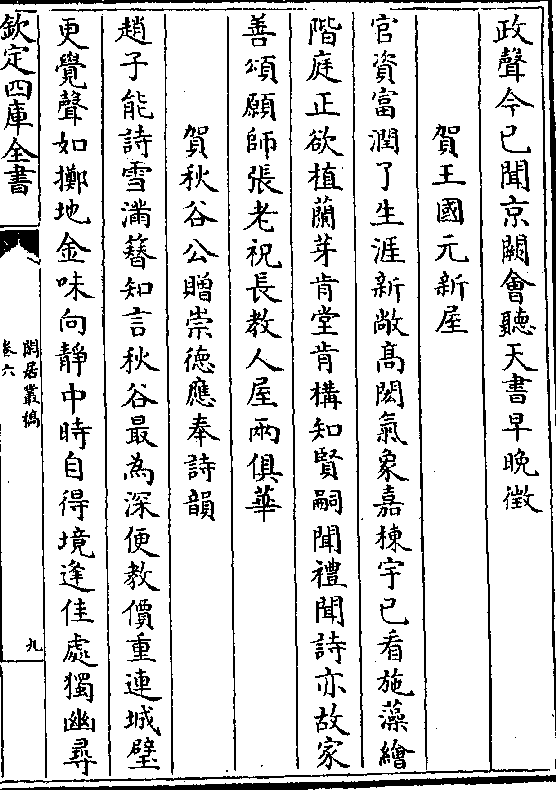 政聲今已聞京闕會聽天書早晚徵
賀王國元新屋
官資富潤了生涯新敞髙閎氣象嘉棟宇已看施藻繪
階庭正欲植蘭芽肯堂肯構知賢嗣聞禮聞詩亦故家
善頌願師張老祝長教人屋兩俱華
賀秋谷公贈崇德應奉詩韻
趙子能詩雪滿簪知言秋谷最為深便教價重連城璧
更覺聲如擲地金味向靜中時自得境逢佳處獨幽尋
欽定四庫全書
閑居叢稿
卷六
九